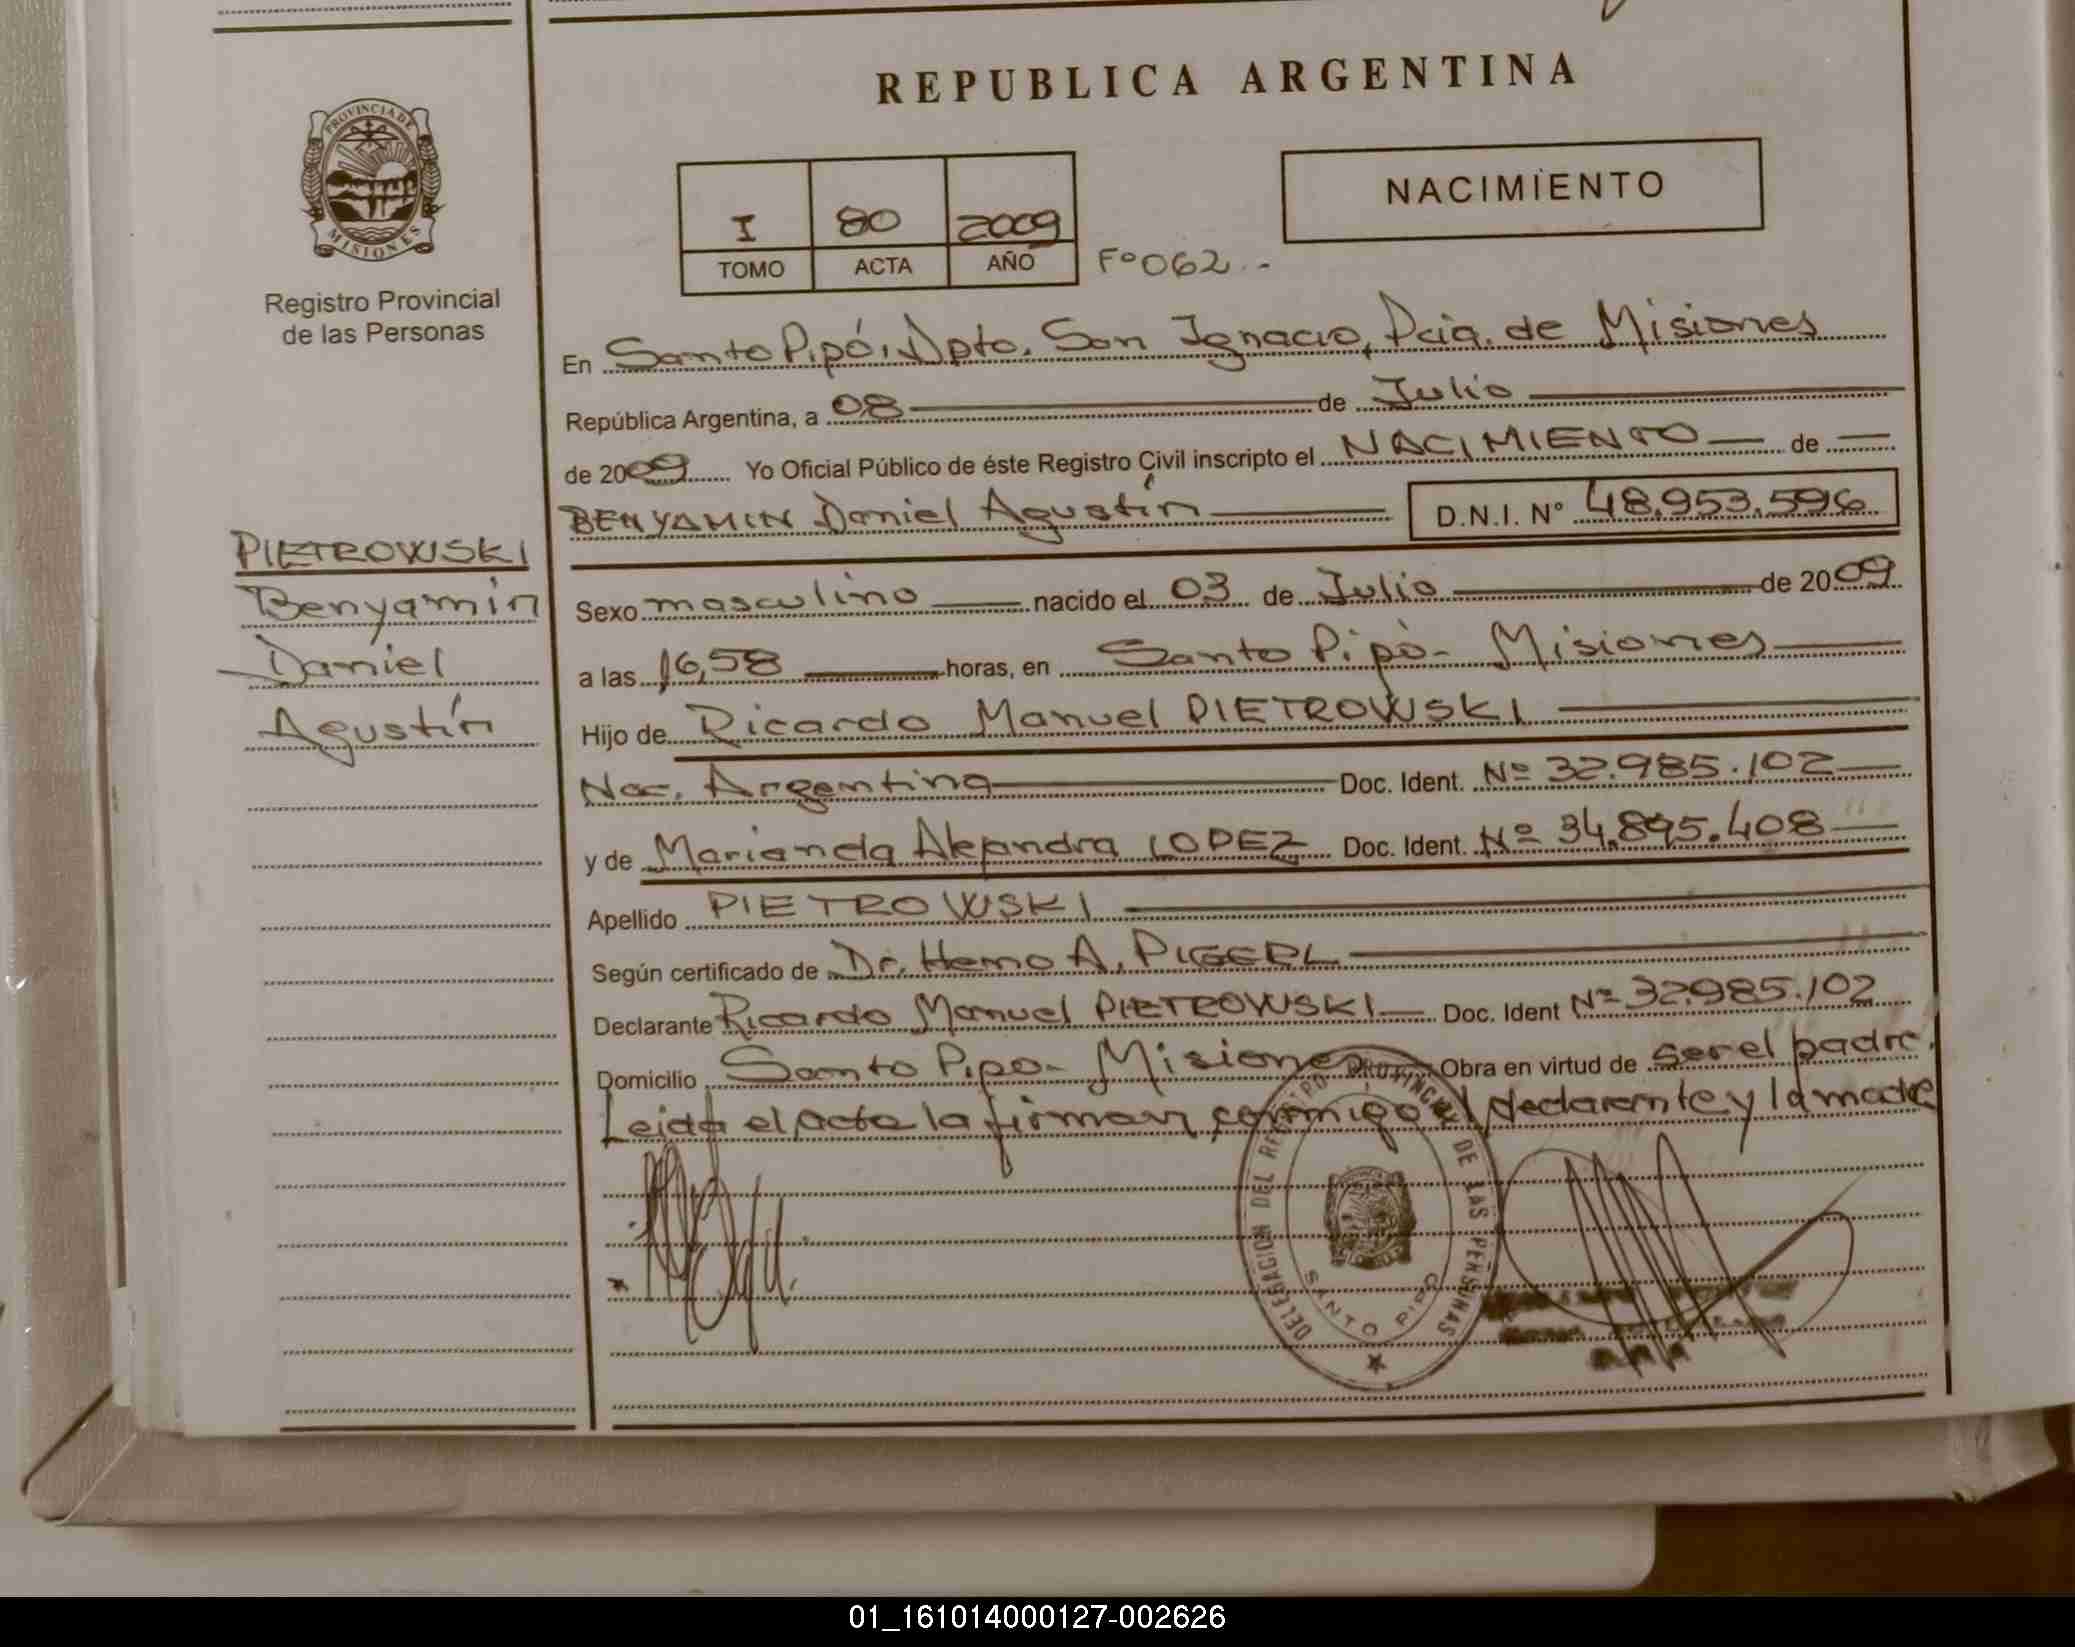 REPUBLICA ARGENTINA
PROVINCIA DE MISIONES
Registro Provincial
de las Personas
I 80 2009
TOMO ACTA AÑO
Fº062.-
NACIMIENTO
En Santo Pipó, Dpto. San Ignacio, Pcia. de Misiones
República Argentina, a 08 de Julio
de 2009 Yo Oficial Público de éste Registro Civil inscripto el NACIMIENTO de
BENYAMIN Daniel Agustín D.N.I. N° 48.953.596
PIETROWSKI
Benyamín
Daniel
Agustín
Sexo masculino nacido el 03 de Julio de 2009
a las 16,58 horas, en Santo Pipó- Misiones
Hijo de Ricardo Manuel PIETROWSKI
Nac. Argentina Doc. Ident. Nº 32.985.102
y de Marianela Alejandra LOPEZ Doc. Ident. Nº 34.895.408
Apellido PIETROWSKI
Según certificado de Dr. A.
Declarante Ricardo Manuel PIETROWSKI Doc. Ident Nº 32.985.102
Domicilio Santo Pipo- Misiones Obra en virtud de ser el padre.
Leida el acta la firman conmigo el declarante y la madre
DELEGACION DEL REGISTRO PROVINCIAL DE LAS PERSONAS
SANTO PIPO
01_161014000127-002626